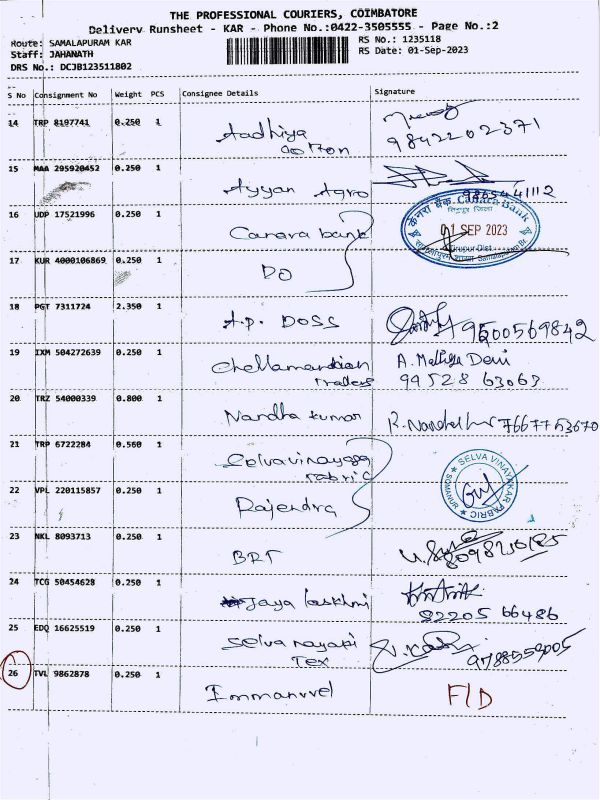 THE PROFESSIONAL COURIERS, COIMBATORE
Delivery Runsheet - KAR - Phone No.:0422-3505555 - Page No.:2
Route: SAMALAPURAM KAR
RS No.: 1235118
Staff: JAHANATH
RS Date: 01-Sep-2023
DRS No.: DCJB123511802
S No Consignment No Weight PCS Consignee Details Signature
14 TRP 8197741 0.250 1 Aadhiya cotton
9842202371
15 MAA 295920452 0.250 1 Ayyan Agro
9865441112
16 UDP 17521996 0.250 1 Canara bank
केनरा बैंक Canara Bank
01 SEP 2023
17 KUR 4000106869 0.250 1 DO
18 PGT 7311724 2.350 1 A.P. DOSS
9500569842
19 IXM 504272639 0.250 1 Chellamandian traders
99528 63063
20 TRZ 54000339 0.800 1 Nandha kumar
R. Nandha 76677 53670
21 TRP 6722284 0.560 1 Selvavinayaga Fabric
SELVA VINAYAKAR FABRIC
SOMANUR
22 VPL 220115857 0.250 1 Rajendra
23 NKL 8093713 0.250 1 BRT
24 TCG 50454628 0.250 1 Jaya lakshmi
82205 66486
25 EDQ 16625519 0.250 1 Selva nayaki Tex
9788559005
26 TVL 9862878 0.250 1 Immanuvel F/D